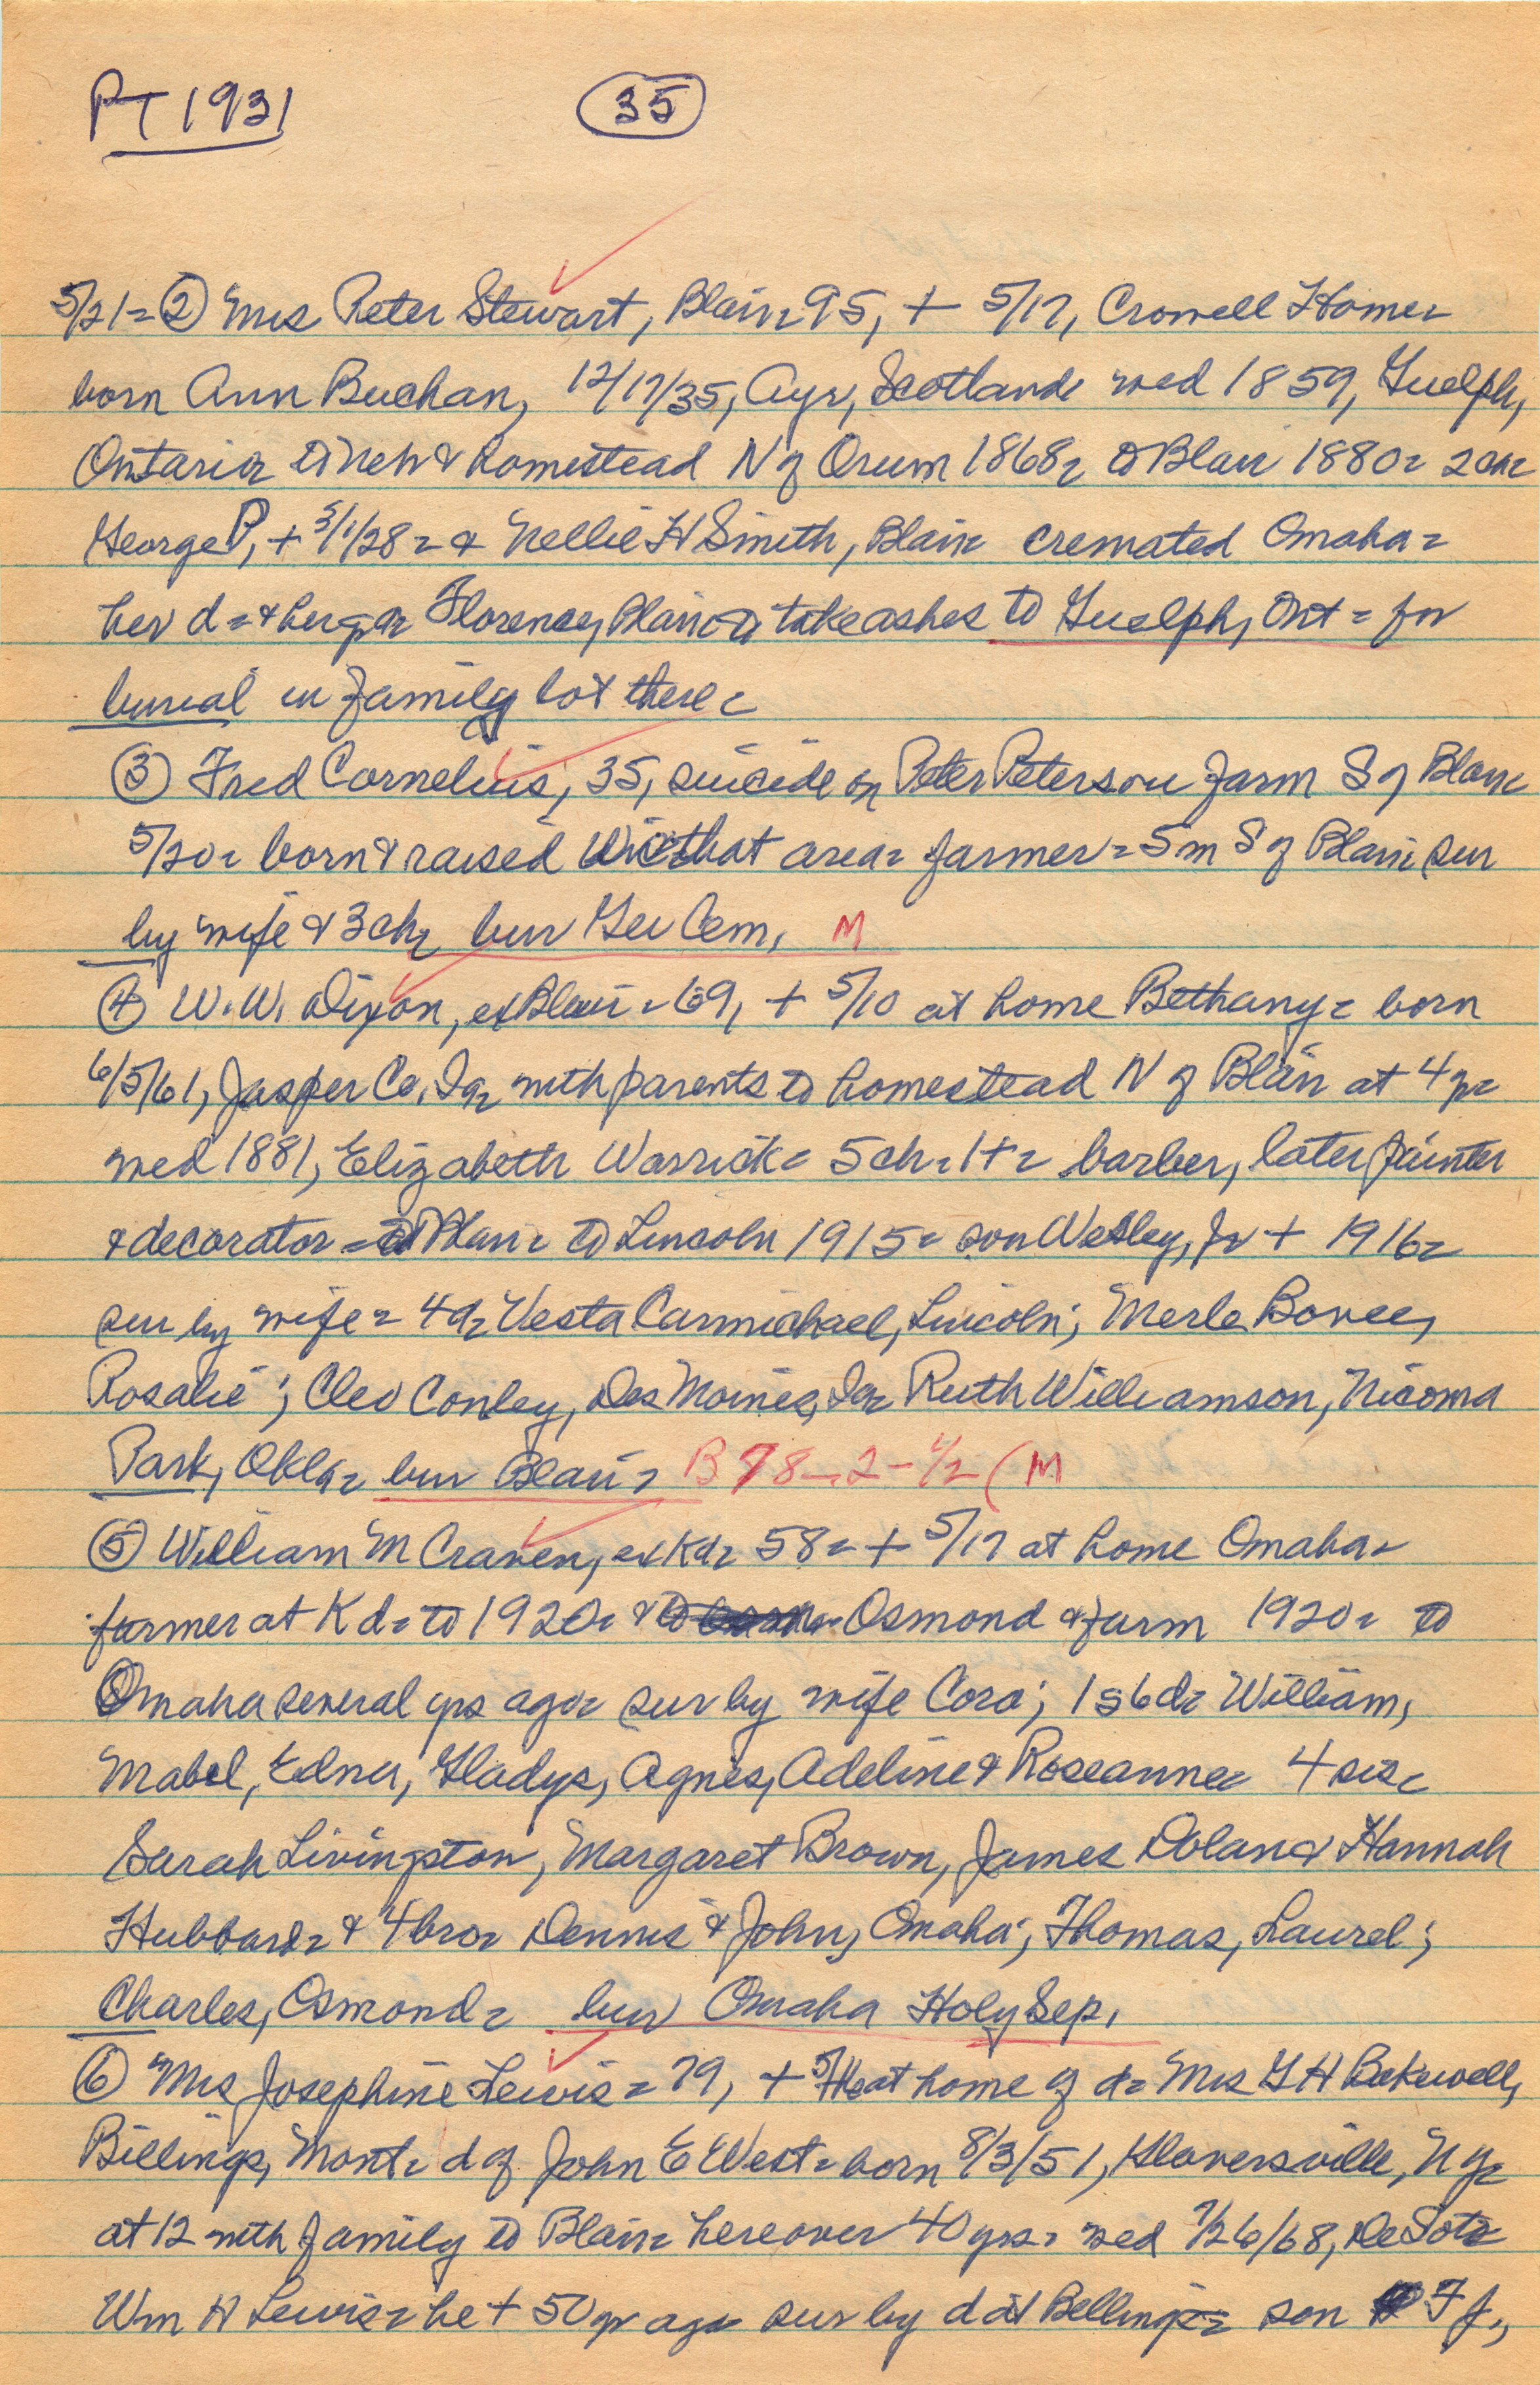 PT 1931 (35)
5/21= ② Mrs Peter Stewart, Blair= 95, + 5/17, Crowell Home=
born Ann Buchan, 12/17/35, Ayr, Scotland= wed 1859, Guelph,
Ontario= to Neb & homestead N of Orum 1868= to Blair 1880= 2 ch=
George P, + 3/1/28= & Nellie H Smith, Blair= cremated Omaha=
her d= & her Florence, Blair= to take ashes to Guelph, Ont= for
burial in family lot there=
③ Fred Cornelius, 35, suicide on Peter Peterson farm S of Blair
5/20= born & raised that area= farmer= 5 m S of Blair= sur
by wife & 3 ch= bur Ger Cem, M
④ W. W. Dixon, ex Blair= 69, + 5/10 at home Bethany= born
6/5/61, Jasper Co, Ia= with parents to homestead N of Blair at 4 yr=
wed 1881, Elizabeth Warrick= 5 ch= 1+= barber, later painter
& decorator= Blair= to Lincoln 1915= son Wesley, Jr + 1916=
sur by wife= 4 d= Vesta Carmichael, Lincoln; Merle Bovee,
Rosalie; Cleo Conley, Des Moines, Ia= Ruth Williamson, Nicoma
Park, Okla= bur Blair= B 78-2-1/2 (M
⑤ William M Craven, ex Kd= 58= + 5/17 at home Omaha=
farmer at Kd= to 1920= & Osmond & farm 1920= to
Omaha several yrs ago= sur by wife Cora; 1 s 6 d= William,
Mabel, Edna, Gladys, Agnes, Adeline & Roseanne= 4 sis=
Sarah Livingston, Margaret Brown, James Dolan & Hannah
Hubbard= & 4 bro= Dennis & John, Omaha; Thomas, Laurel;
Charles, Osmond= bur Omaha Holy Sep,
⑥ Mrs Josephine Lewis= 79, + at home of d= Mrs G H Bakewell,
Billings, Mont= d of John E West= born 8/3/51, Gloversville, NY=
at 12 with family to Blair= here over 40 yrs= wed 7/26/68, DeSoto
Wm H Lewis= he + 50 yr ago sur by d at Billings= son F J,